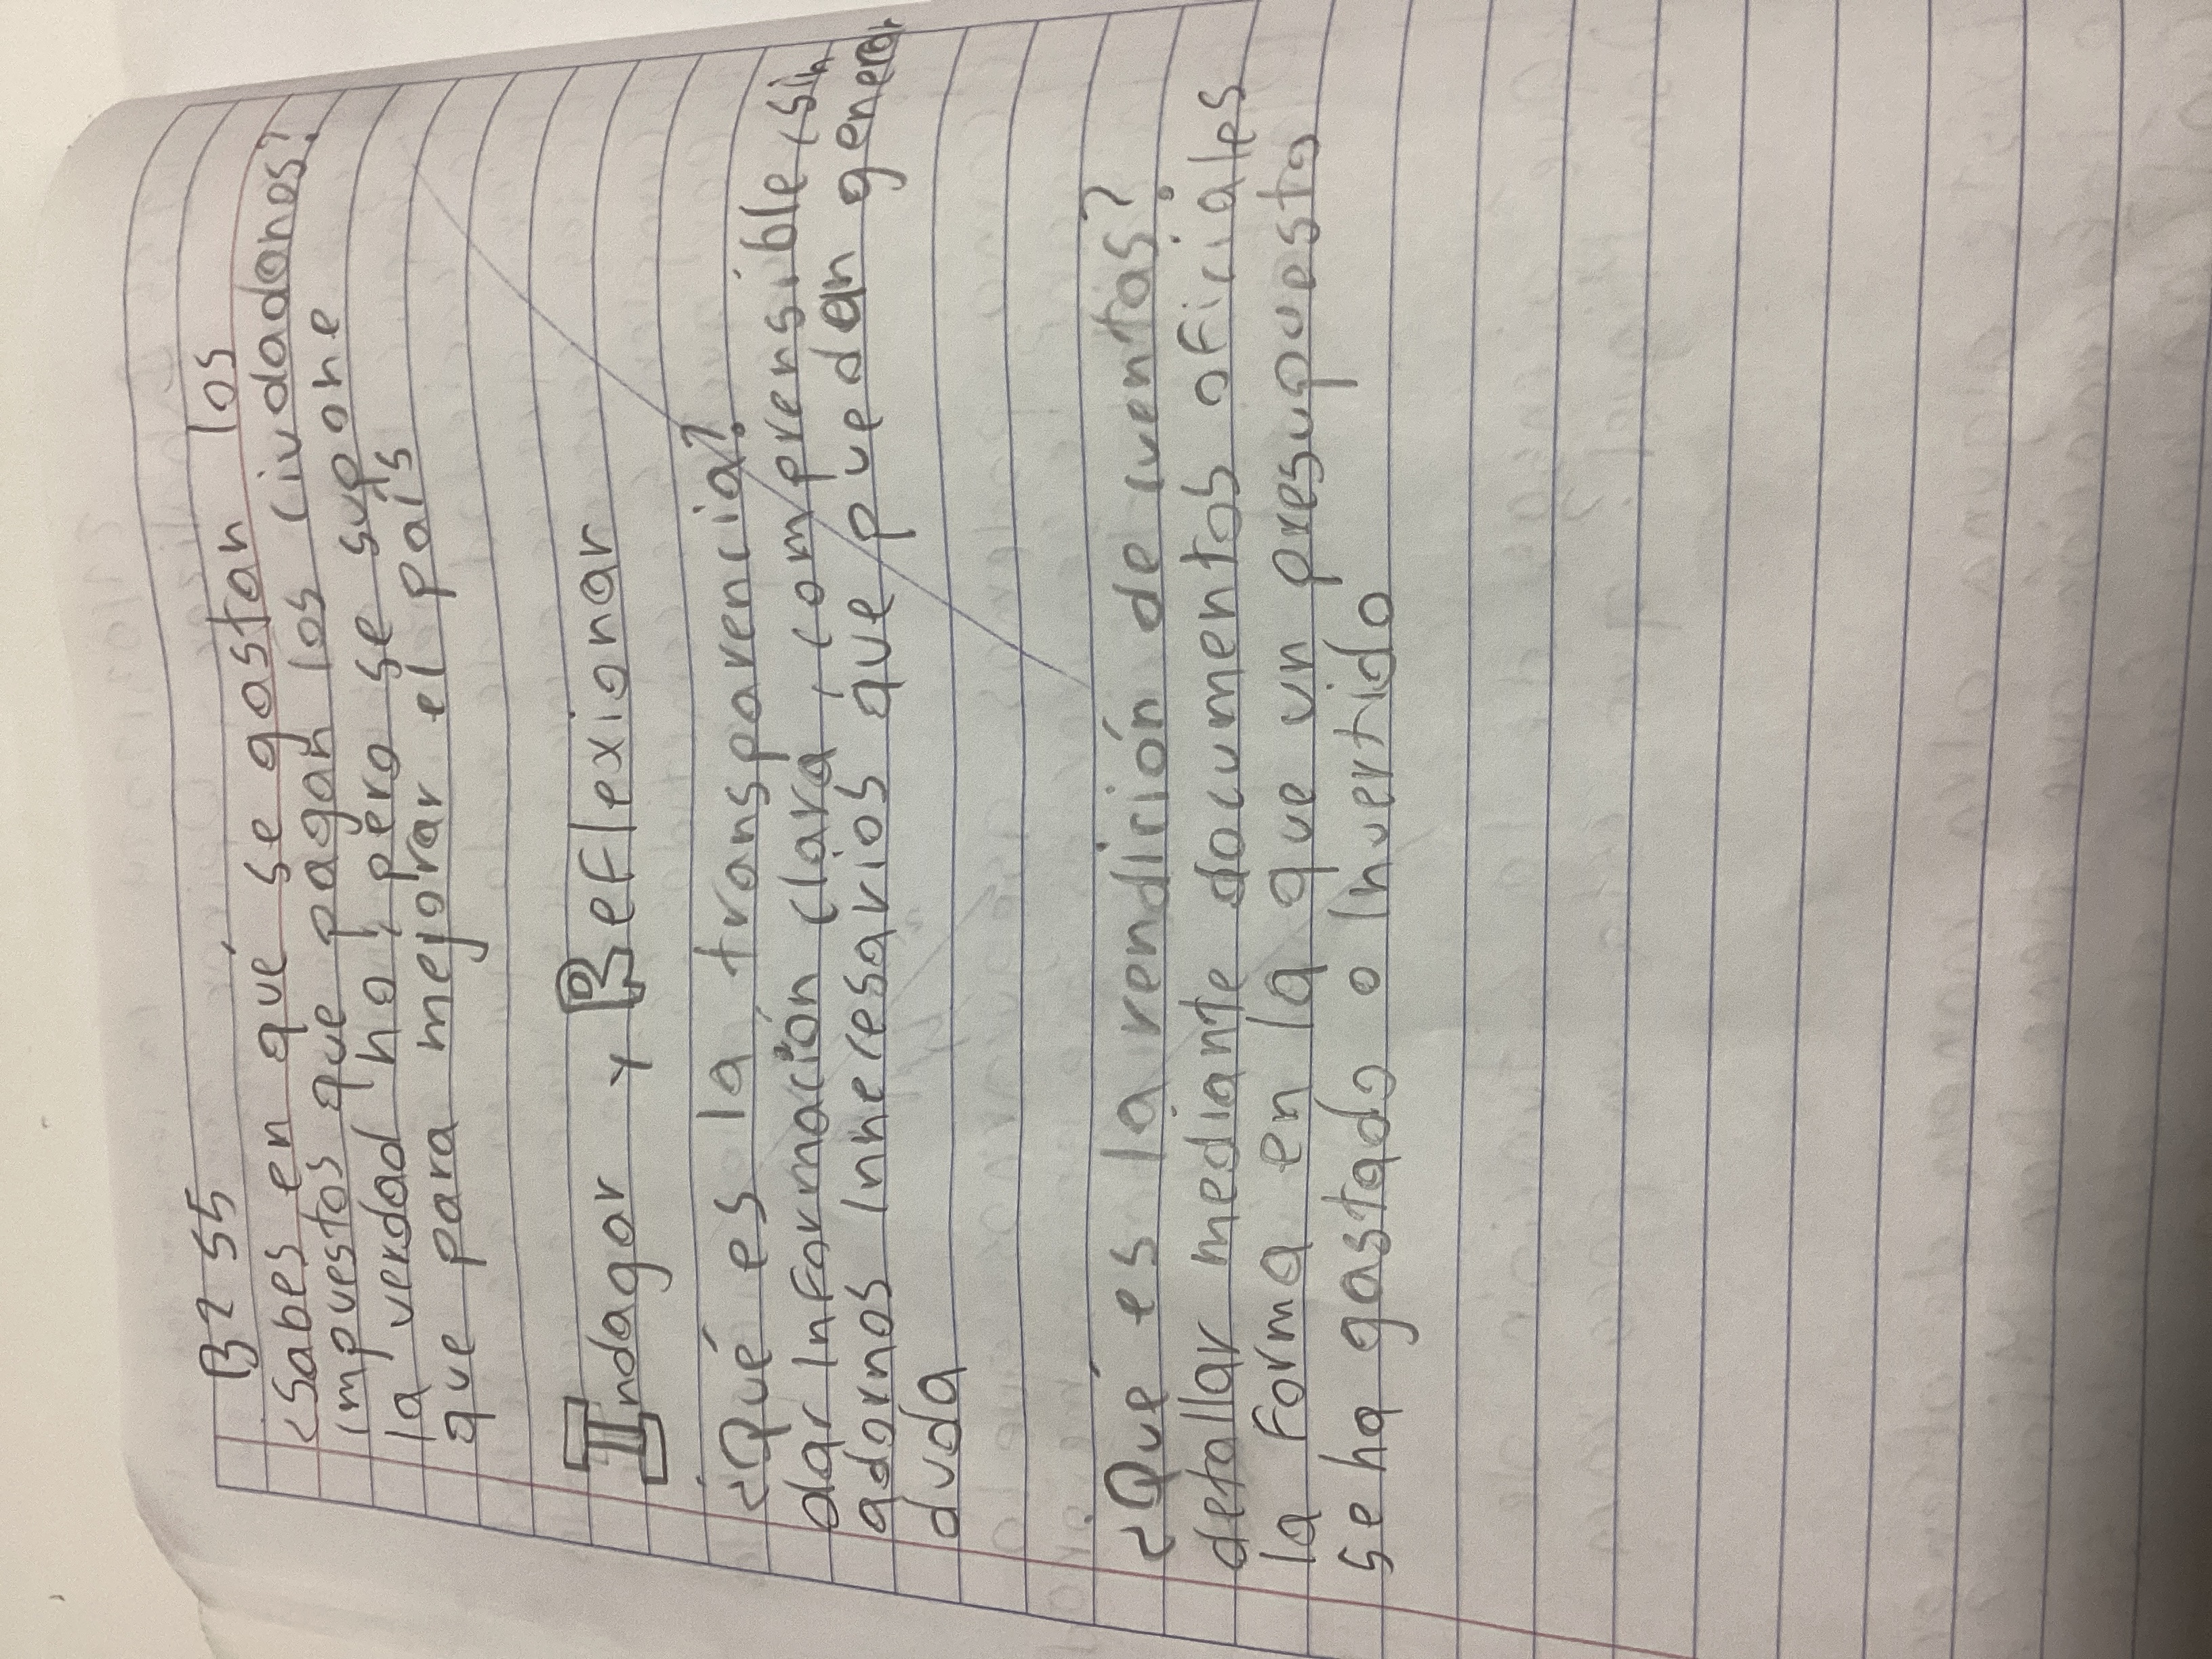 B2 S5
¿Sabes en qué se gastan los
impuestos que pagan los ciudadanos?
la verdad no, pero se supone
que para mejorar el país
Indagar y Reflexionar
¿Qué es la transparencia?
dar información clara, comprensible, sin
adornos innecesarios que puedan generar
duda
¿Qué es la rendición de cuentas?
detallar mediante documentos oficiales
la forma en la que un presupuesto
se ha gastado o invertido